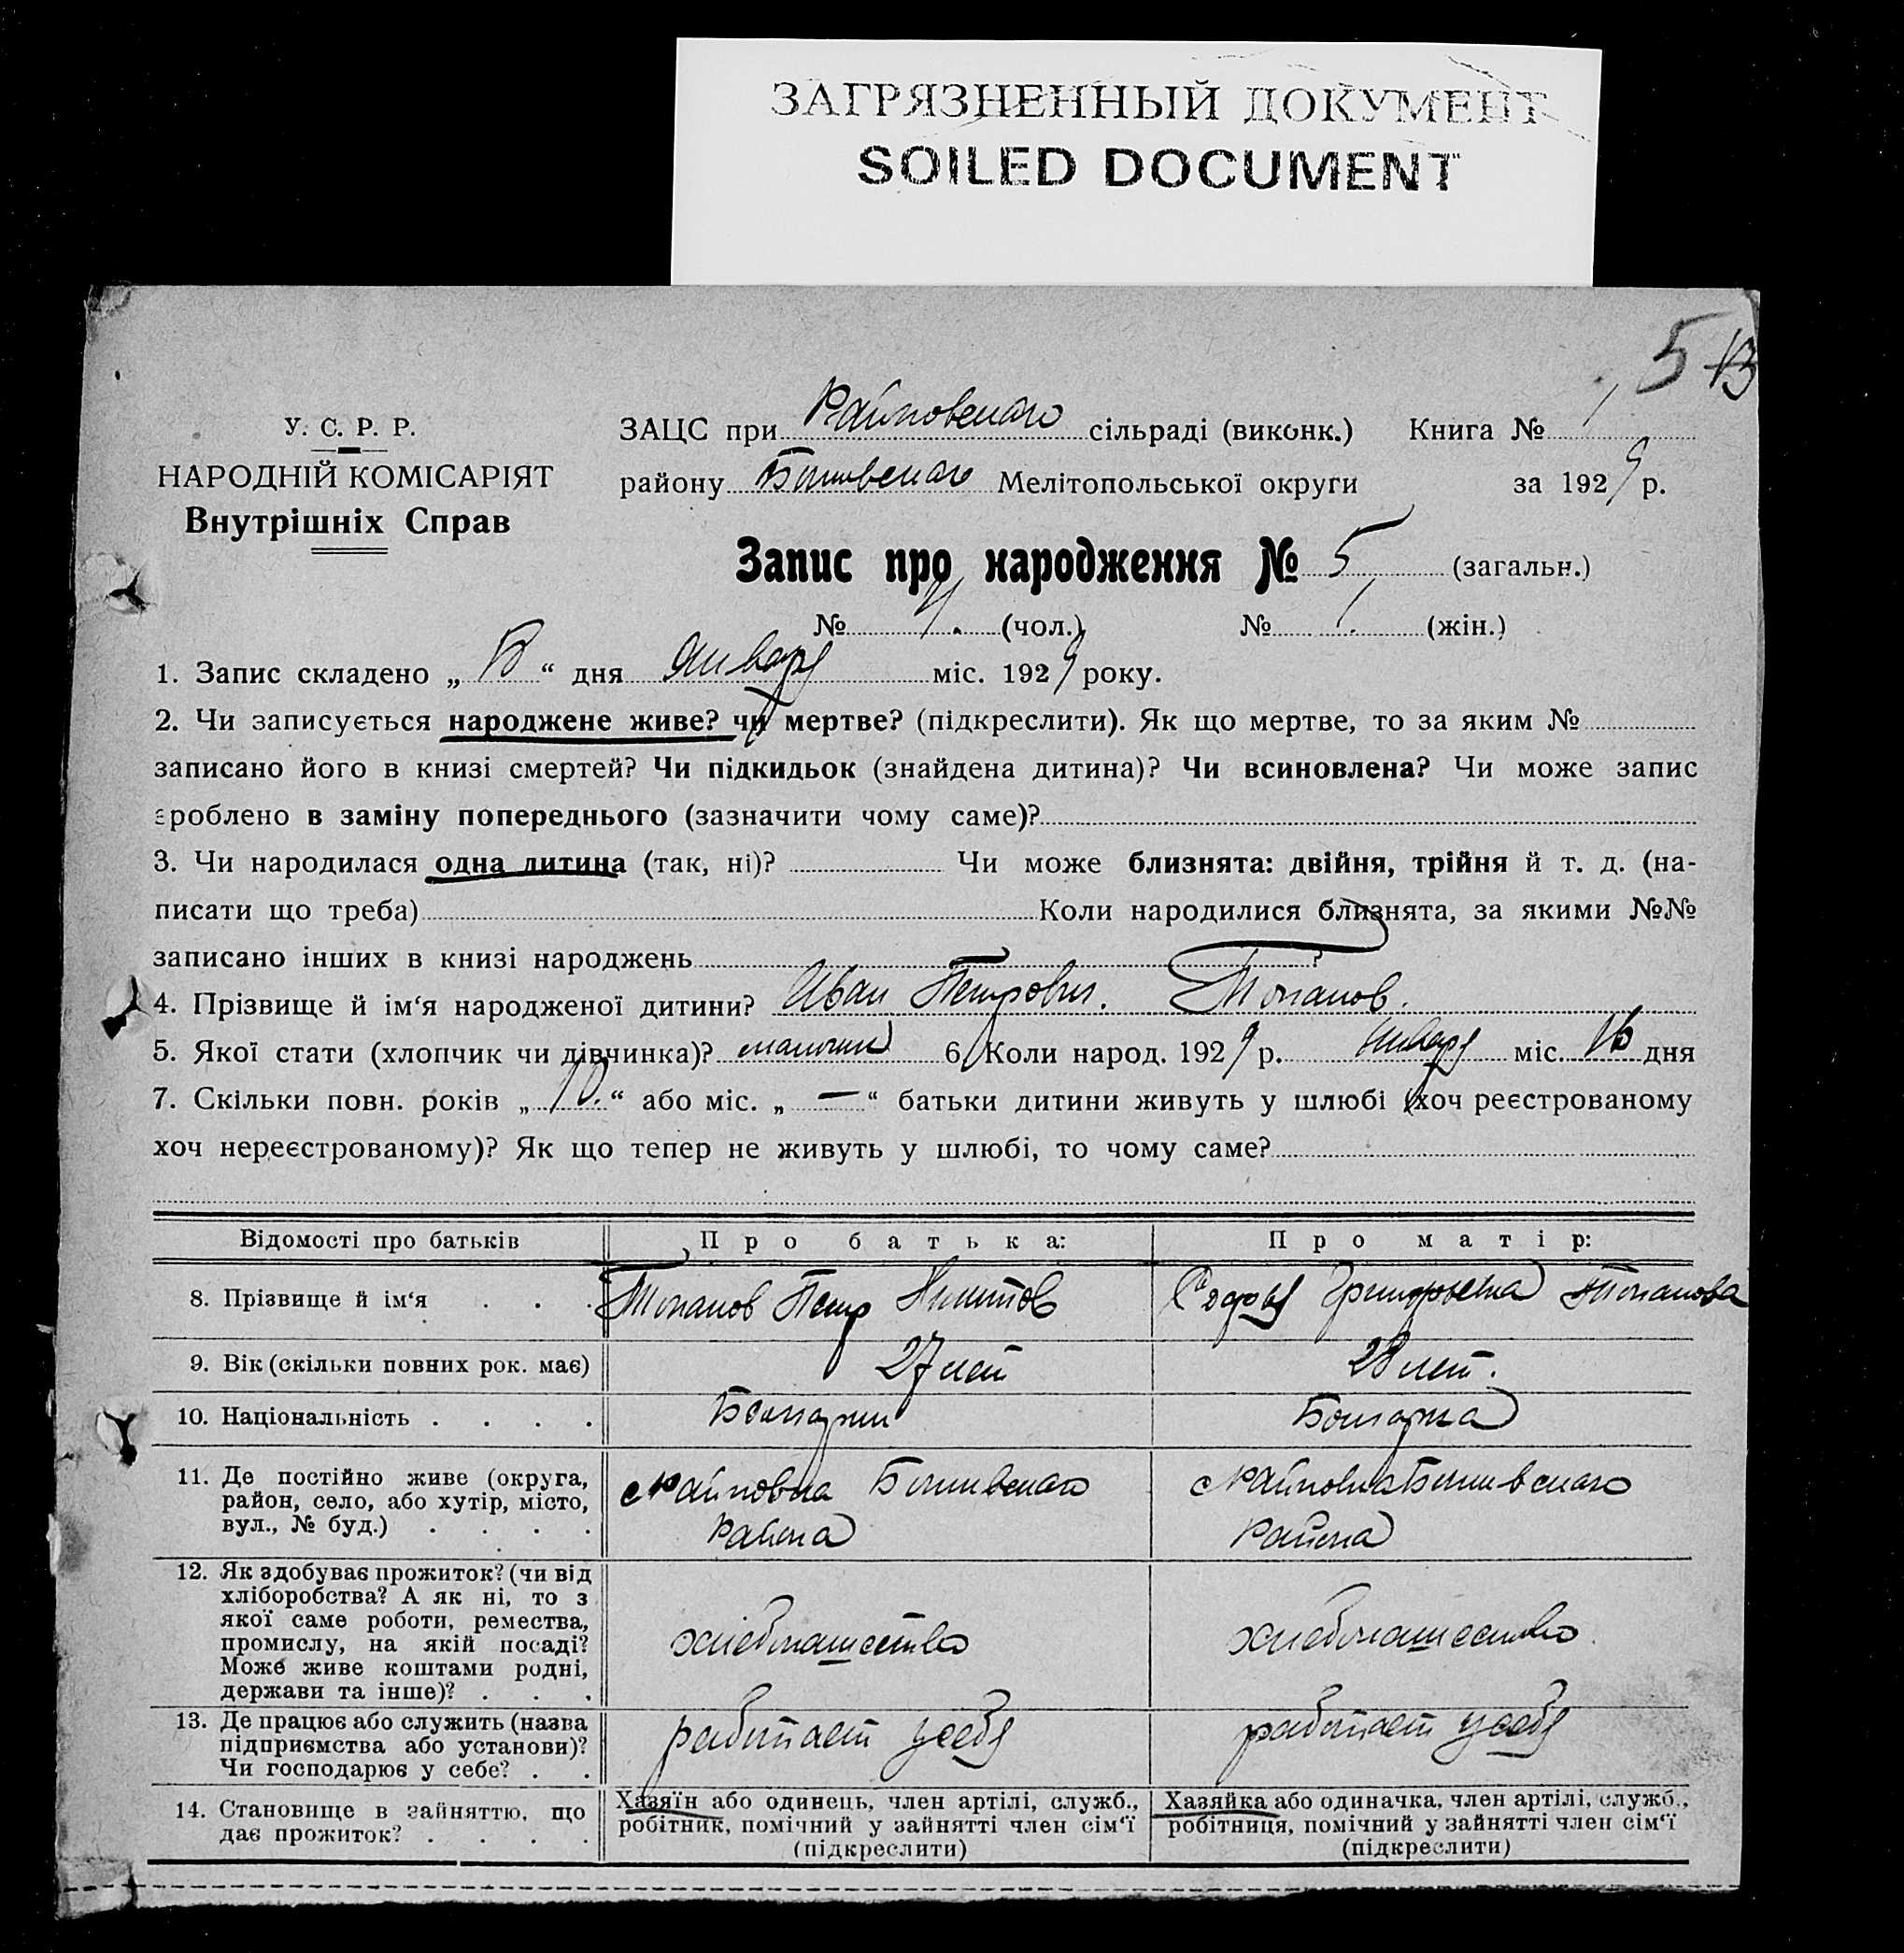 ЗАГРЯЗНЕННЫЙ ДОКУМЕНТ
SOILED DOCUMENT
5
У. С. Р. Р.
НАРОДНІЙ КОМІСАРІЯТ
Внутрішніх Справ
ЗАЦС при сільраді (виконк.) Книга № 1
району Мелітопольської округи за 1929 р.
Запис про народження № 5 (загальн.)
№ 4. (чол.) № 1. (жін.)
1. Запис складено „ “ дня января міс. 1929 року.
2. Чи записується народжене живе? чи мертве? (підкреслити). Як що мертве, то за яким №
записано його в книзі смертей? Чи підкидьок (знайдена дитина)? Чи всиновлена? Чи може запис
зроблено в заміну попереднього (зазначити чому саме)?
3. Чи народилася одна дитина (так, ні)? Чи може близнята: двійня, трійня й т. д. (на-
писати що треба) Коли народилися близнята, за якими №№
записано інших в книзі народжень ?
4. Прізвище й ім‘я народженої дитини? Иван Петрович. Топалов.
5. Якої стати (хлопчик чи дівчинка)? мальчик 6. Коли народ. 1929 р. января міс. дня
7. Скільки повн. років „ 10. “ або міс. „ — “ батьки дитини живуть у шлюбі (хоч реєстрованому
хоч нереєстрованому)? Як що тепер не живуть у шлюбі, то чому саме?
Відомості про батьків Про батька: Про матір:
8. Прізвище й ім‘я Топалов Петр Топалова
9. Вік (скільки повних рок. має) 27 лет 28 лет.
10. Національність Болгарин Болгарка
11. Де постійно живе (округа,
район, село, або хутір, місто,
вул., № буд.)
с Райновка района
с Райновка района
12. Як здобуває прожиток? (чи від
хліборобства? А як ні, то з
якої саме роботи, ремества,
промислу, на якій посаді?
Може живе коштами родні,
держави та інше)?
хлебопашество хлебопашество
13. Де працює або служить (назва
підприємства або установи)?
Чи господарює у себе?
работает у себя работает у себя
14. Становище в зайняттю, що
дає прожиток?
Хазяїн або одинець, член артілі, служб.,
робітник, помічний у зайнятті член сім‘ї
(підкреслити)
Хазяйка або одиначка, член артілі, служб.,
робітниця, помічний у зайнятті член сім‘ї
(підкреслити)